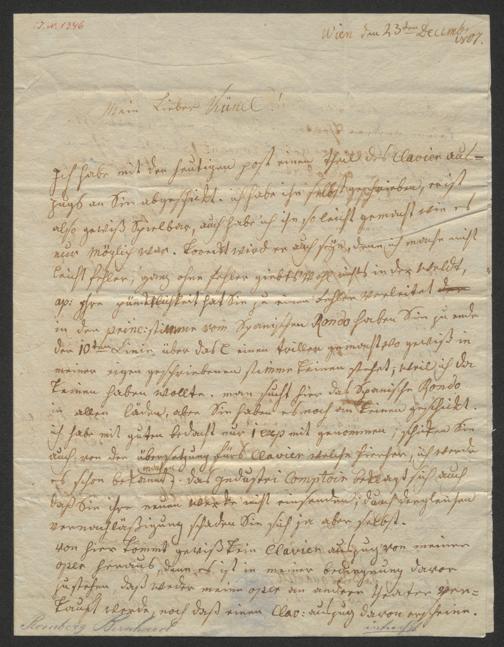 I. N. 1246
Wien den 23ten Decemb:
1807.
Mein Lieber Kühnel!
Ich habe mit der heutigen post einen theil des Clavier aus=
zugs an Sie abgeschickt. ich habe ihn selbst geschrieben, er ist
also gewiß Spielbar, auch habe ich ihn so leicht gemacht wie es
nur möglich war. Correct wird er auch seyn, denn ich mache nicht
leicht fehler, ganz ohne fehler giebts wohl nichts in der Weldt,
ap: Ihre pünktlichkeit hat Sie zu einem Fehler verleitet
in der princ: stimme vom Spanischen Rondo haben Sie zu ende
der 10ten Linie über das C einen triller gemacht wo gewiß in
meiner eigen geschriebenen stimme keiner stehet, weil ich da
keinen haben wollte. man sucht hier das Spanische Rondo
in allen läden, aber Sie haben es noch an keinen geschickt.
ich habe mit guten bedacht nur 1 exp mit genommen, schicken Sie
auch von der übersetzung fürs Clavier welche hierher, ich werde
es schon bekannt machen. das Industri Comptoir beklagt sich auch
daß Sie ihre neuen werke nicht einsenden; durch dergleichen
vernachläßigung schaden Sie sich ja aber selbst.
von hier kommt gewiß kein Clavier auszug von meiner
oper heraus, denn es ist in meiner bedingung davor
zustehen daß weder meine oper an andere Theater ver=
kauft werde, noch daß einen Clav: auszug davon erscheine.
Romberg Bernhard